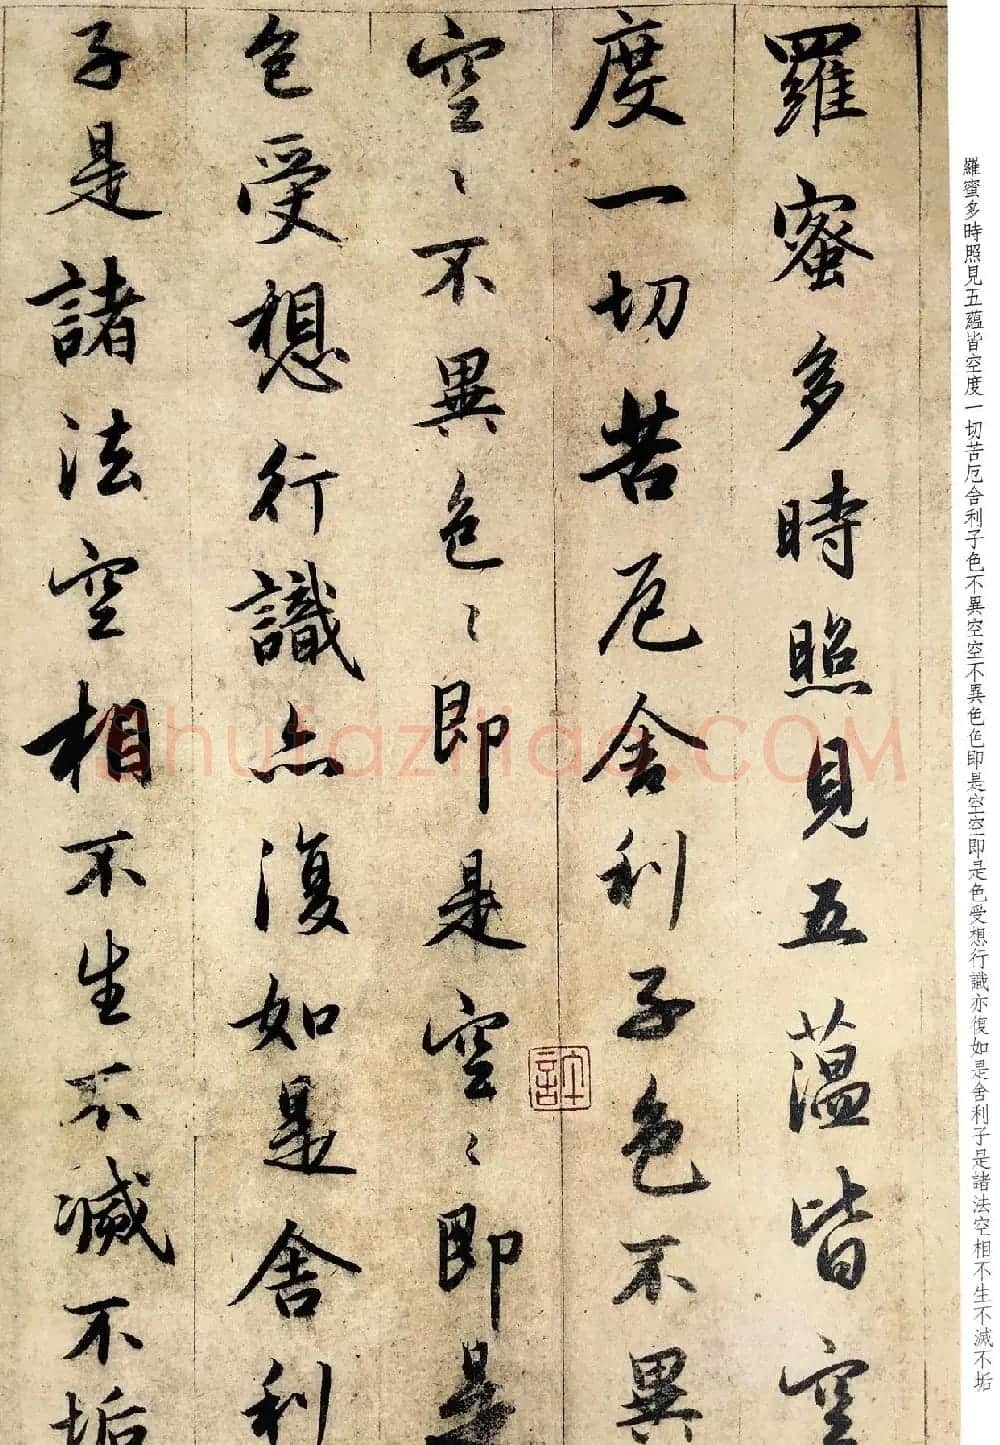 羅蜜多時照見五蘊皆空
度一切苦厄舍利子色不異
空〻不異色〻即是空〻即是
色受想行識亦復如是舍利
子是諸法空相不生不滅不垢
羅蜜多時照見五蘊皆空度一切苦厄舍利子色不異空空不異色色即是空空即是色受想行識亦復如是舍利子是諸法空相不生不滅不垢
shufaziliao.COM